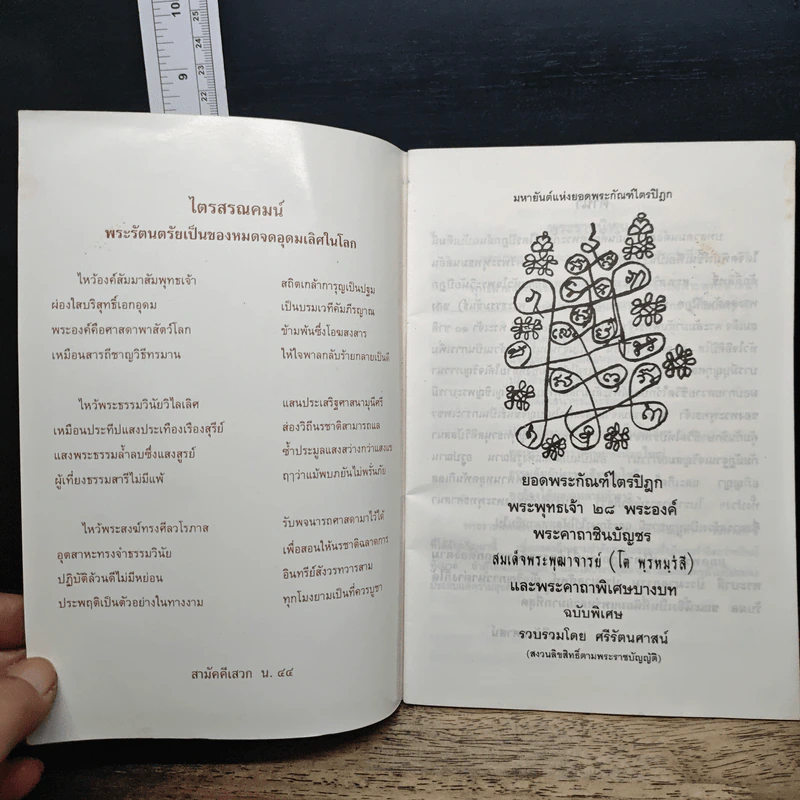 ไตรสรณคมน์
พระรัตนตรัยเป็นของหมดจดอุดมเลิศในโลก
ไหว้องค์สัมมาสัมพุทธเจ้า สถิตเกล้าการุญเป็นปฐม
ผ่องใสบริสุทธิ์เอกอุดม เป็นบรมเวทีคัมภีรญาณ
พระองค์คือศาสดาพาสัตว์โลก ข้ามพ้นซึ่งโอฆสงสาร
เหมือนสารถีชาญวิธีทรมาน ให้ใจพาลกลับร้ายกลายเป็นดี
ไหว้พระธรรมวินัยวิไลเลิศ แสนประเสริฐศาสนามุนีศรี
เหมือนประทีปแสงประเทืองเรืองสุรีย์ ส่องวิถีนรชาติสามารถแล
แสงพระธรรมล้ำลบซึ่งแสงสูรย์ ซ้ำประมูลแสงสว่างกว่าแสงแข
ผู้เที่ยงธรรมสารีไม่มีแพ้ ฤาว่าแม้พบภยันไม่พรั่นภัย
ไหว้พระสงฆ์ทรงศีลวโรภาส รับพจนารถศาสดามาไว้ได้
อุตสาหะทรงจำธรรมวินัย เพื่อสอนให้นรชาติฉลาดการ
ปฏิบัติล้วนดีไม่มีหย่อน อินทรีย์สังวรทวารสาม
ประพฤติเป็นตัวอย่างในทางงาม ทุกโมงยามเป็นที่ควรบูชา
สามัคคีเสวก น. ๔๔
มหายันต์แห่งยอดพระกัณฑ์ไตรปิฎก
ยอดพระกัณฑ์ไตรปิฎก
พระพุทธเจ้า ๒๘ พระองค์
พระคาถาชินบัญชร
สมเด็จพระพุฒาจารย์ (โต พฺรหฺมรํสี)
และพระคาถาพิเศษบางบท
ฉบับพิเศษ
รวบรวมโดย ศรีรัตนศาสน์
(สงวนลิขสิทธิ์ตามพระราชบัญญัติ)